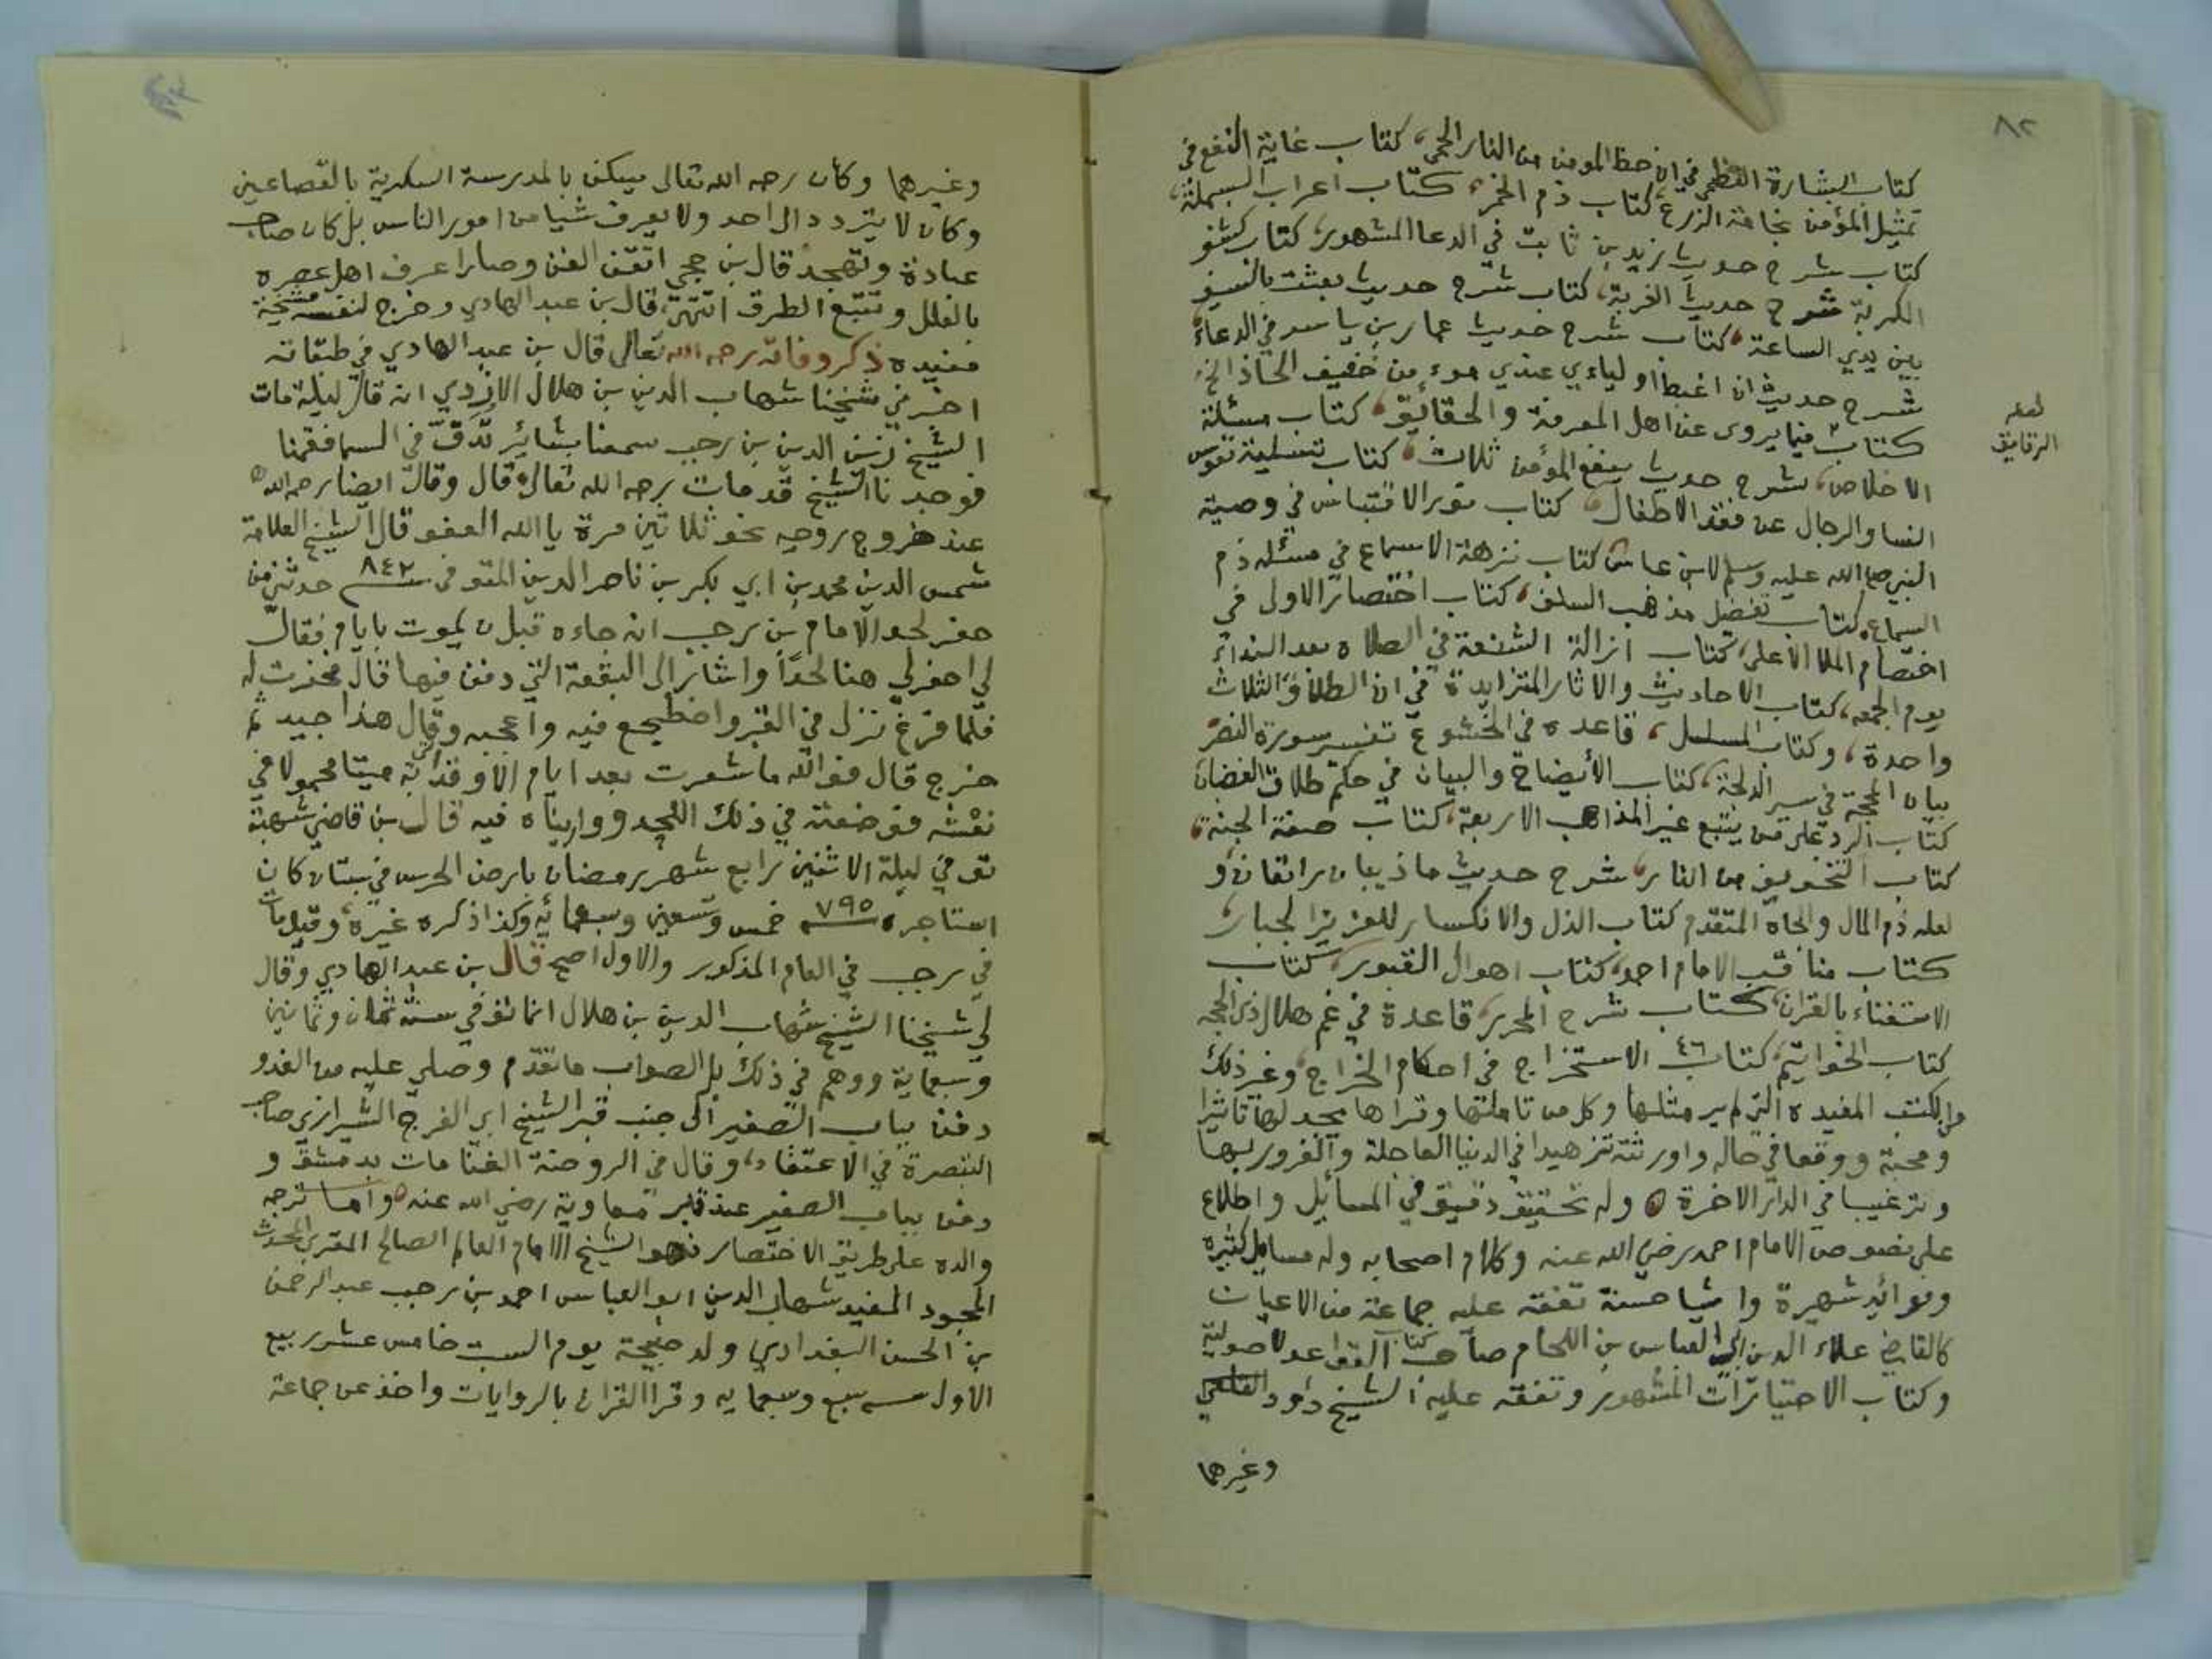 ٨٢
كتاب البشارة العظمى في ان حظ المومن من النار الحمى، كتاب غاية النفع في
تمثيل المؤمن بخامة الزرع، كتاب ذم الخمر، كتاب اعراب البسملة،
كتاب شرح حديث زيد بن ثابت في الدعا المشهور، كتاب كشف
الكربة شرح حديث الغربة، كتاب شرح حديث بعثت بالسيف
بين يدي الساعة، كتاب شرح حديث عمار بن ياسر في الدعاء
شرح حديث ان اغبط اولياءي عندي موءمن خفيف الحاذ الخ،
كتاب فيما يروى عن اهل المعرفة والحقائق، كتاب مسئلة
لعله
الرقايق
الاخلاص، شرح حديث يتبع المؤمن ثلاث، كتاب تسلية نفوس
النسا والرجال عن فقد الاطفال، كتاب نور الاقتباس في وصية
النبي صلى الله عليه وسلم لابن عباس، كتاب نزهة الاسماع في مسئله ذم
السماع، كتاب تفضل مذهب السلف، كتاب اختصار الاولى في
اختصام الملا الاعلى، كتاب ازالة الشنعة في الصلاه بعد النداء
يوم الجمعه، كتاب الاحاديث والاثار المتزايدة في ان الطلاق الثلاث
واحدة، وكتاب المسلسل، قاعده في الخشوع تفسير سورة النصر
بيان المحجة في سير الدلجة، كتاب الأيضاح والبيان في حكم طلاق الغضبان
كتاب الرد على من يتبع غير المذاهب الاربعة، كتاب صفة الجنة،
كتاب التخويف من النار، شرح حديث ما ذيبان راتعان و
لعله ذم المال والجاه المتقدم كتاب الذل والانكسار للعزيز الجبار
كتاب مناقب الامام احمد، كتاب اهوال القبور، كتاب
الاستغناء بالقران، كتاب شرح المحرر، قاعدة في غم هلال ذى الحجه
كتاب الخواتيم، كتاب الاستخراج في احكام الخراج، وغير ذلك
من الكتب المفيده التي لم ير مثلها وكل من تاملها وقراها يجد لها تاثيرا
ومحبة ووقعا في حاله واورثته تزهيدا في الدنيا العاجلة والغرور بها
وترغيبا في الدار الاخرة وله تحقيق دقيق في المسايل واطلاع
على نصوص الامام احمد رضي الله عنه وكلام اصحابه وله مسايل كثيره
وفوائد شهيرة واشيا حسنة تفقه عليه جماعة من الاعيان
كالقاضي علاء الدين ابي العباس بن اللحام صاحب كتاب القواعد الاصولية
وكتاب الاختيارات المشهور وتفقه عليه الشيخ داود
وغيرهما
وغيرهما وكان رحمه الله تعالى يسكن بالمدرسة السكرية بالقصاعين
وكان لا يتردد الى احد ولا يعرف شيا من امور الناس بل كان صاحب
عبادة وتهجد قال بن حجي اتقن الفن وصار اعرف اهل عصره
بالعلل وتتبع الطرق انتهى، قال بن عبد الهادي وخرج لنفسه مشيخة
مفيده ذكر وفاته رحمه الله تعالى قال بن عبد الهادي في طبقاته
اخبرني شيخنا شهاب الدين بن هلال الازدي انه قال ليلة مات
الشيخ زين الدين بن رجب سمعنا بشائر تدق في السما فقمنا
فوجدنا الشيخ قد مات رحمه الله تعالى قال وقال ايضا رحمه الله
عند خروج روحه نحو ثلاثين مرة يا الله العفو قال الشيخ العلامة
شمس الدين محمد بن ابي بكر بن ناصر الدين المتوفى سنه ٨٤٢ حدثني من
حفر لحد الامام بن رجب انه جاءه قبل ان يموت بايام فقال
لي احفر لي هنا لحدًا واشار الى البقعة التي دفن فيها قال فحفرت له
فلما فرغ نزل في القبر واضطجع فيه واعجبه وقال هذا جيد ثم
خرج قال فوالله ما شعرت بعد ايام الا وقد اتي به ميتا محمولا في
نعشه فوضعته في ذلك اللحد وواريناه فيه قال بن قاضي شهبة
توفي ليلة الاثنين رابع شهر رمضان بارض الحرس في بستان كان
استاجره سنه ٧٩٥ خمس وتسعين وسبعمائة وكذا ذكره غيره، وقيل مات
في رجب في العام المذكور والاول اصح قال بن عبد الهادي وقال
لي شيخنا الشيخ شهاب الدين بن هلال انما توفي سنة ثمان وثمانين
وسبعماية ووهم في ذلك بل الصواب ما تقدم وصلي عليه من الغد و
دفن بباب الصغير الى جنب قبر الشيخ ابي الفرج الشيرازي صاحب
التبصرة في الاعتقاد، وقال في الروضة الغنا مات بدمشق و
دفن بباب الصغير عند قبر معاوية رضي الله عنه واما ترجمه
والده على طريق الاختصار فهو الشيخ الامام العالم الصالح المقري المحدث
المجود المفيد شهاب الدين ابو العباس احمد بن رجب عبد الرحمن
بن الحسن البغدادي ولد صبيحة يوم السبت خامس عشر ربيع
الاول سنه سبع وسبعمايه وقرا القران بالروايات واخذ عن جماعة